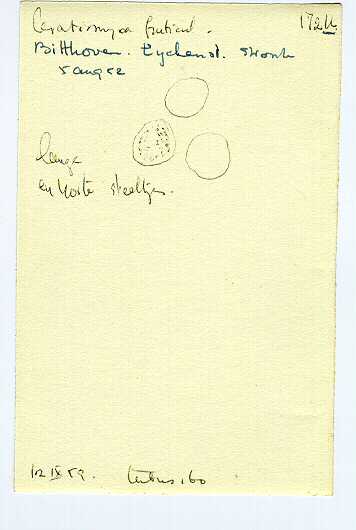 Ceratiomyxa fruticul. 172 U
Bilthoven. Eyckenst. stronk
5 aug 52
lange
en korte steeltjes.
12 IX 59. tubus 160